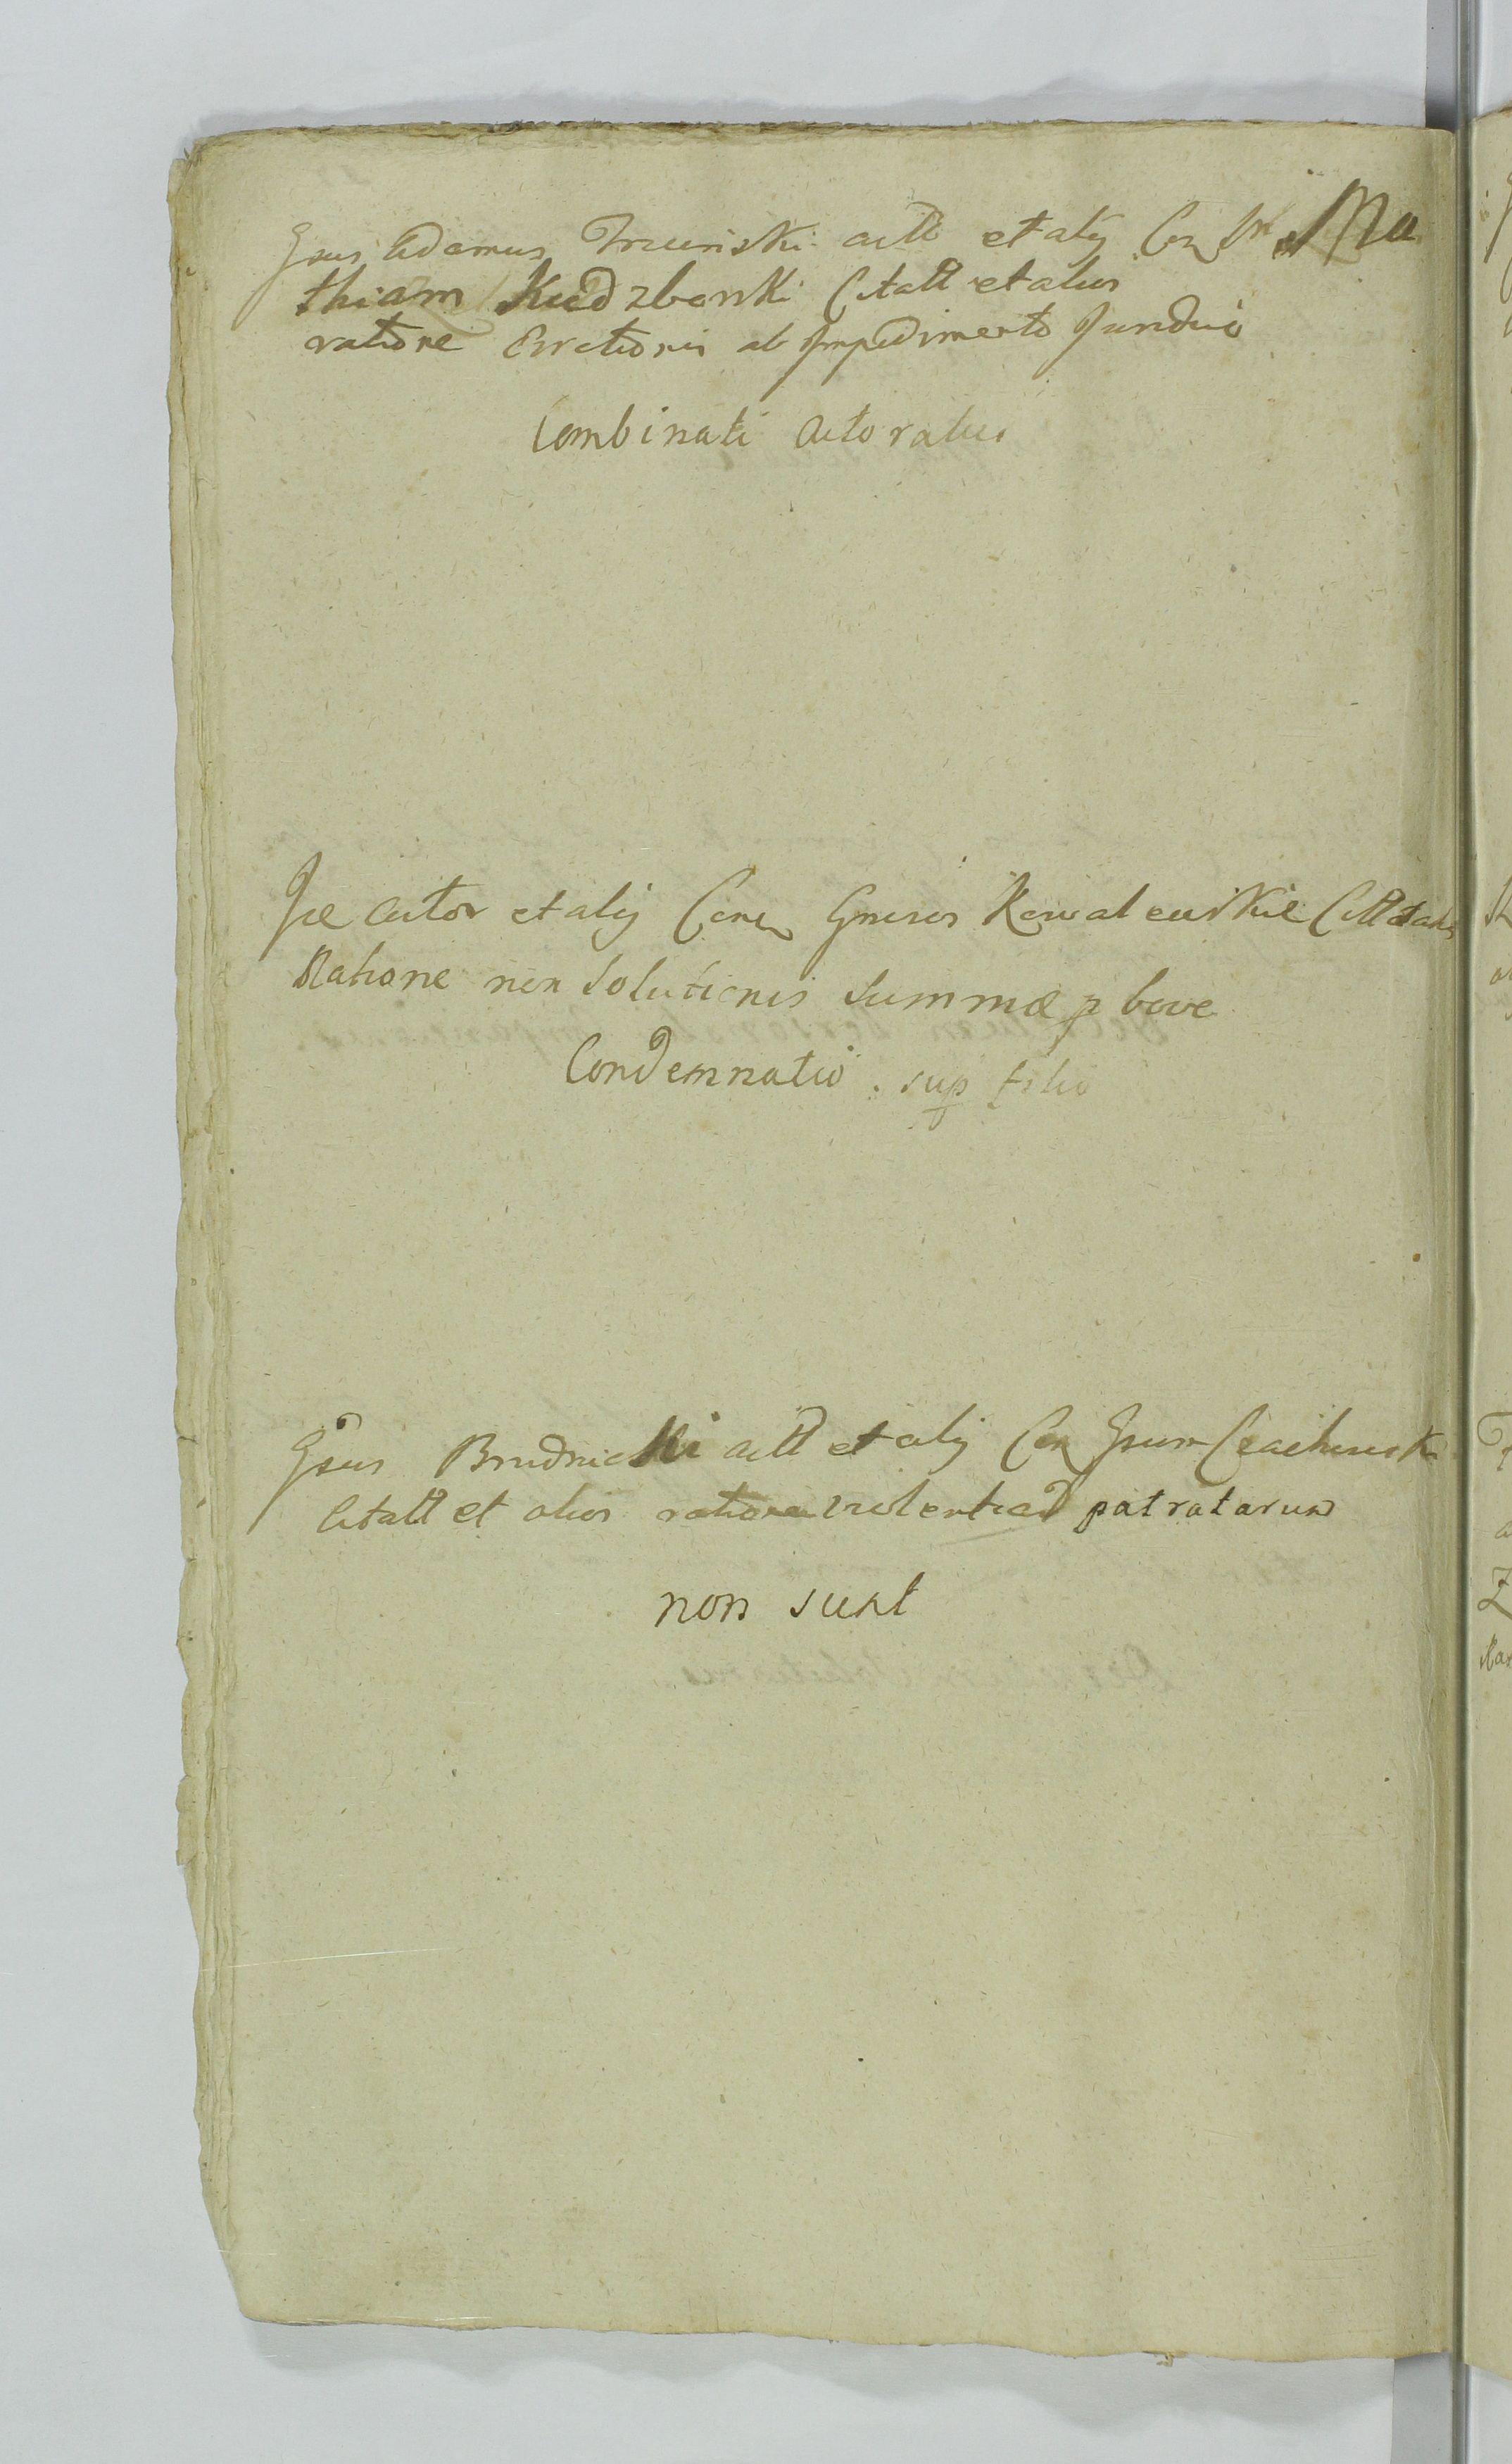 Gsus Adamus Trzcinski actt et alij Con Gr Ma
thiam Kudzborski Citatt et alios
ratione Evictionis ab Impedimento Jundic
Combinati Actoratus
Ide Actor et alij Con Gnesos Kowalewskie Citt et alios
Ratione non Solutionis Summæ p bove
Condemnatio sup filio
Gsus Brudnicki actt et alij Con Gsum
Citatt et alios ratione violentiar patratarum
non sunt